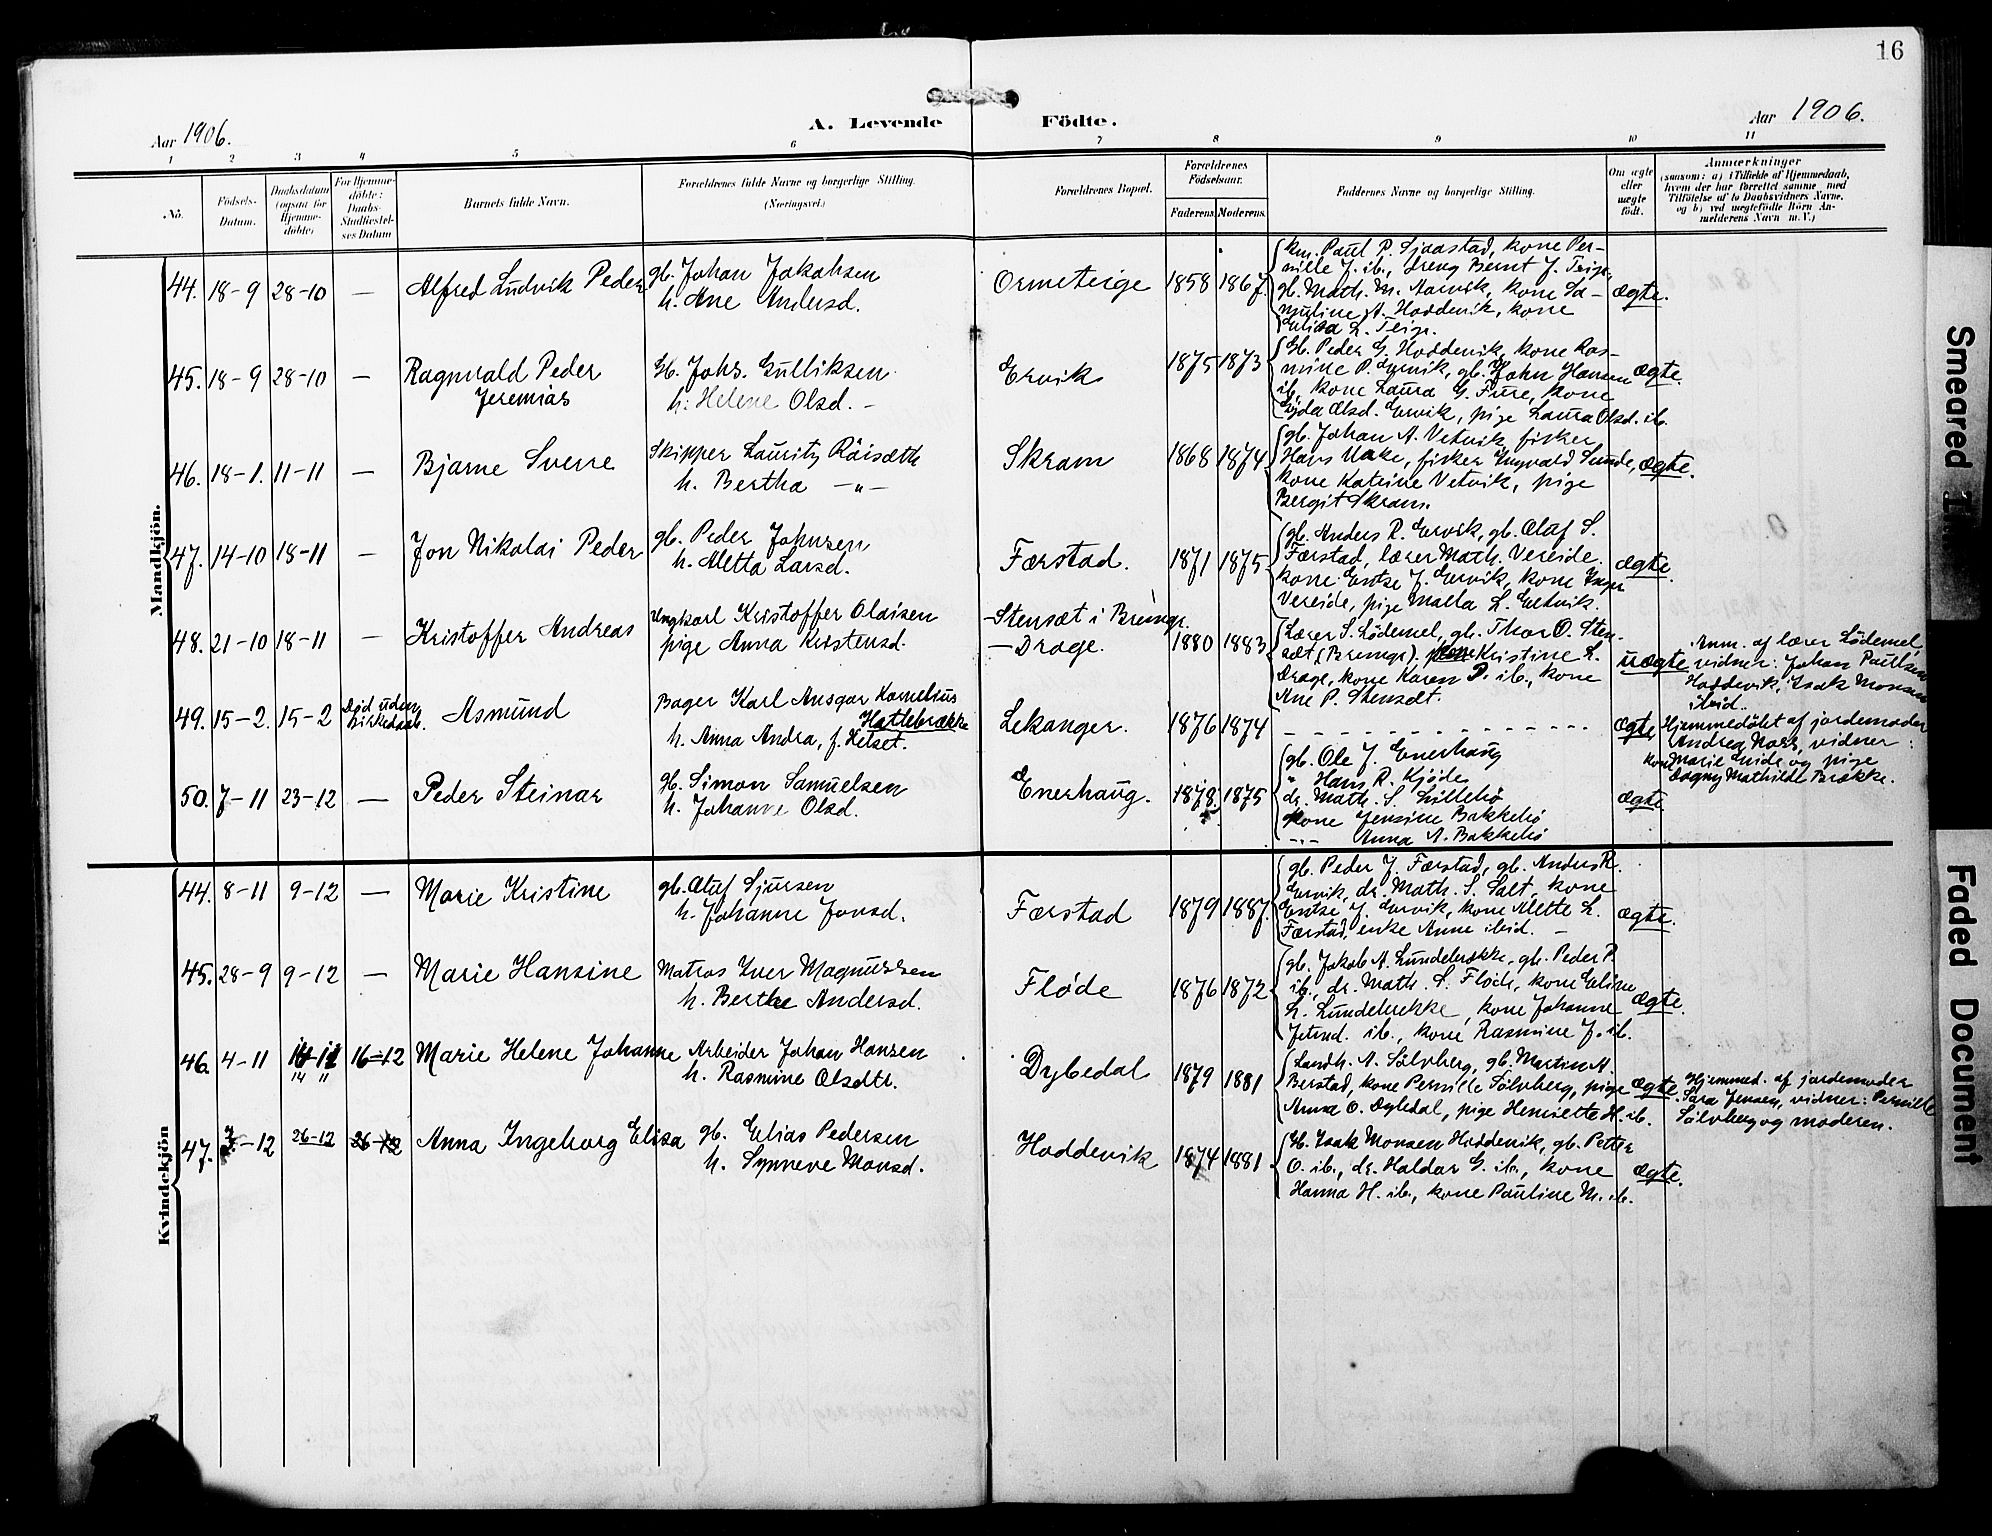 16
Aar 1906.
A. Levende Födte.
Aar 1906.
1 2 3 4 5 6 7 8 9 10 11
No.
Födsels-Datum.
Daabsdatum (ogsaa for Hjemmedöbte)
For Hjemmedöbte: Daabs-Stadfæstelses Datum
Barnets fulde Navn.
Forældrenes fulde Navne og borgerlige Stilling.
(Næringsvei.)
Forældrenes Bopæl.
Forældrenes Födselsaar.
Faderens. Moderens.
Faddernes Navne og borgerlige Stilling.
Om ægte eller uægte födt.
Anmærkninger
(saasom: a) i Tilfælde af Hjemmedaab,
hvem der har forrettet samme, med
Tilföielse af to Daabsvidners Navne,
og b) ved uægtefödte Börn An-
melderens Navn m. V.)
Mandkjön.
44. 18-9 28-10 — Alfred Ludvik Peder
gb. Johan Jakobsen
h. Ane Andersd.
Ormeteige 1858 1867
km. Paul P. Sjaastad, kone Per-
nille J. ib., dreng Bernt J. Teige,
gb. Math. M. Aarvik, kone Sa-
muline A. Hoddevik, kone
Elisa L. Teige.
ægte.
45. 18-9 28-10 — Ragnvald Peder
Jeremias
Gb. Johs. Gulliksen
h. Helene Olsd. -
Ervik 1875 1873
Gb. Peder G. Hoddevik, kone Ras-
mine P. Ervik, gb. John Hansen
ib., kone Laura G. Fure, kone
Olsd. Ervik, pige Laura Olsd. ib.
ægte.
46. 18-1. 11-11 — Bjarne Sverre
Skipper Lauritz Röisæth
h. Bertha —"—
Skram 1868 1874
gb. Johan A. Vetvik, fisker
Hans Make, fisker Ingvald Sunde,
kone Katrine Vetvik, pige
Bergit Skram.
ægte.
47. 14-10 18-11 — Jon Nikolai Peder
gb. Peder Johnsen
h. Aletta Larsd.
Færstad. 1871 1875
gb. Anders R. Ervik, gb. Olaf S.
Færstad, lærer Math. Vereide.
kone Entse J. Ervik, kone
Vereide, pige Malla L. Eltvik.
ægte.
48. 21-10 18-11 — Kristoffer Andreas
Ungkarl Kristoffer Olaisen
pige Anna Kristensd.
-Stensæt i Bremgr.
-Drage. 1880 1883
Lærer S. Lödemel, gb. Thor O. Sten-
sæt (Bremgr). Kristine L.
Drage, kone Karen P. ib., kone
Ane P. Stensæt.
uægte
Anm. af lærer Lödemel,
vidner: Johan Paulsen
Hoddevik, Isak Monsen
ibid.
49. 15-2. 15-2 Död uden kirkedaab. Asmund
Bager Karl Ansgar Kornelius
Hatlebrække
h. Anna Andra, f. Helset.
Lekanger. 1876 1874
ægte
Hjemmedöbt af jordemoder
Andrea Mors, vidner:
kone Marie Eide og pige
Dagny Mathilde Brække.
50. 7-11 23-12 — Peder Steinar
gb. Simon Samuelsen
h. Johanne Olsd.
Enerhaug. 1878 1875
gb. Ole J. Enerhaug
" Hans R. Kjöde
dr. Math. S. Lillebö
kone Jensine Bakkebö
-"- Anna A. Bakkebö
ægte
Kvindekjön
44. 8-11 9-12 — Marie Kristine
gb. Oluf Sjursen
h. Johanne Jonsd.
Færstad 1879 1887.
gb. Peder J. Færstad, gb. Anders R.
Ervik, dr. Math. S. Salt, kone
Entse J. Ervik, kone Alette L.
Færstad, enke Anne ibid. -
ægte.
45. 28-9 9-12 — Marie Hansine
Matros Iver Magnussen
h. Berthe Andersd.
Flöde 1876 1872
gb. Jakob A. Lundebrække, gb. Peder P.
ib., dr. Math. S. Flöde, kone Eline
L. Lundebrekke, kone Johanne
ib., kone Rasmine J. ib.
ægte.
46. 4-11 14-11 16-12 Marie Helene Johanne
14 11
Arbeider Johan Hansen
h. Rasmine Olsdtr.
Dybedal 1879 1881
Landh. A. Sölvberg, gb. Martin A.
Berstad, kone Pernille Sölvberg, pige
Anna O. Dybedal, pige Henriette H. ib.
ægte.
Hjemmed. af jordemoder
Sara Jensen, vidner: Pernille
Sölvberg og moderen.
47. 3-12 26-12 26-12 Anna Ingeborg Elisa
gb. Elias Pedersen
h. Synneve Monsd.
Hoddevik 1874 1881
Gb. Isak Monsen Hoddevik, gb. Petter
O. ib., dr. Haldor G. ib., kone
Hanna H. ib., kone Pauline M. ib.
ægte.
Smeared
Faded Document